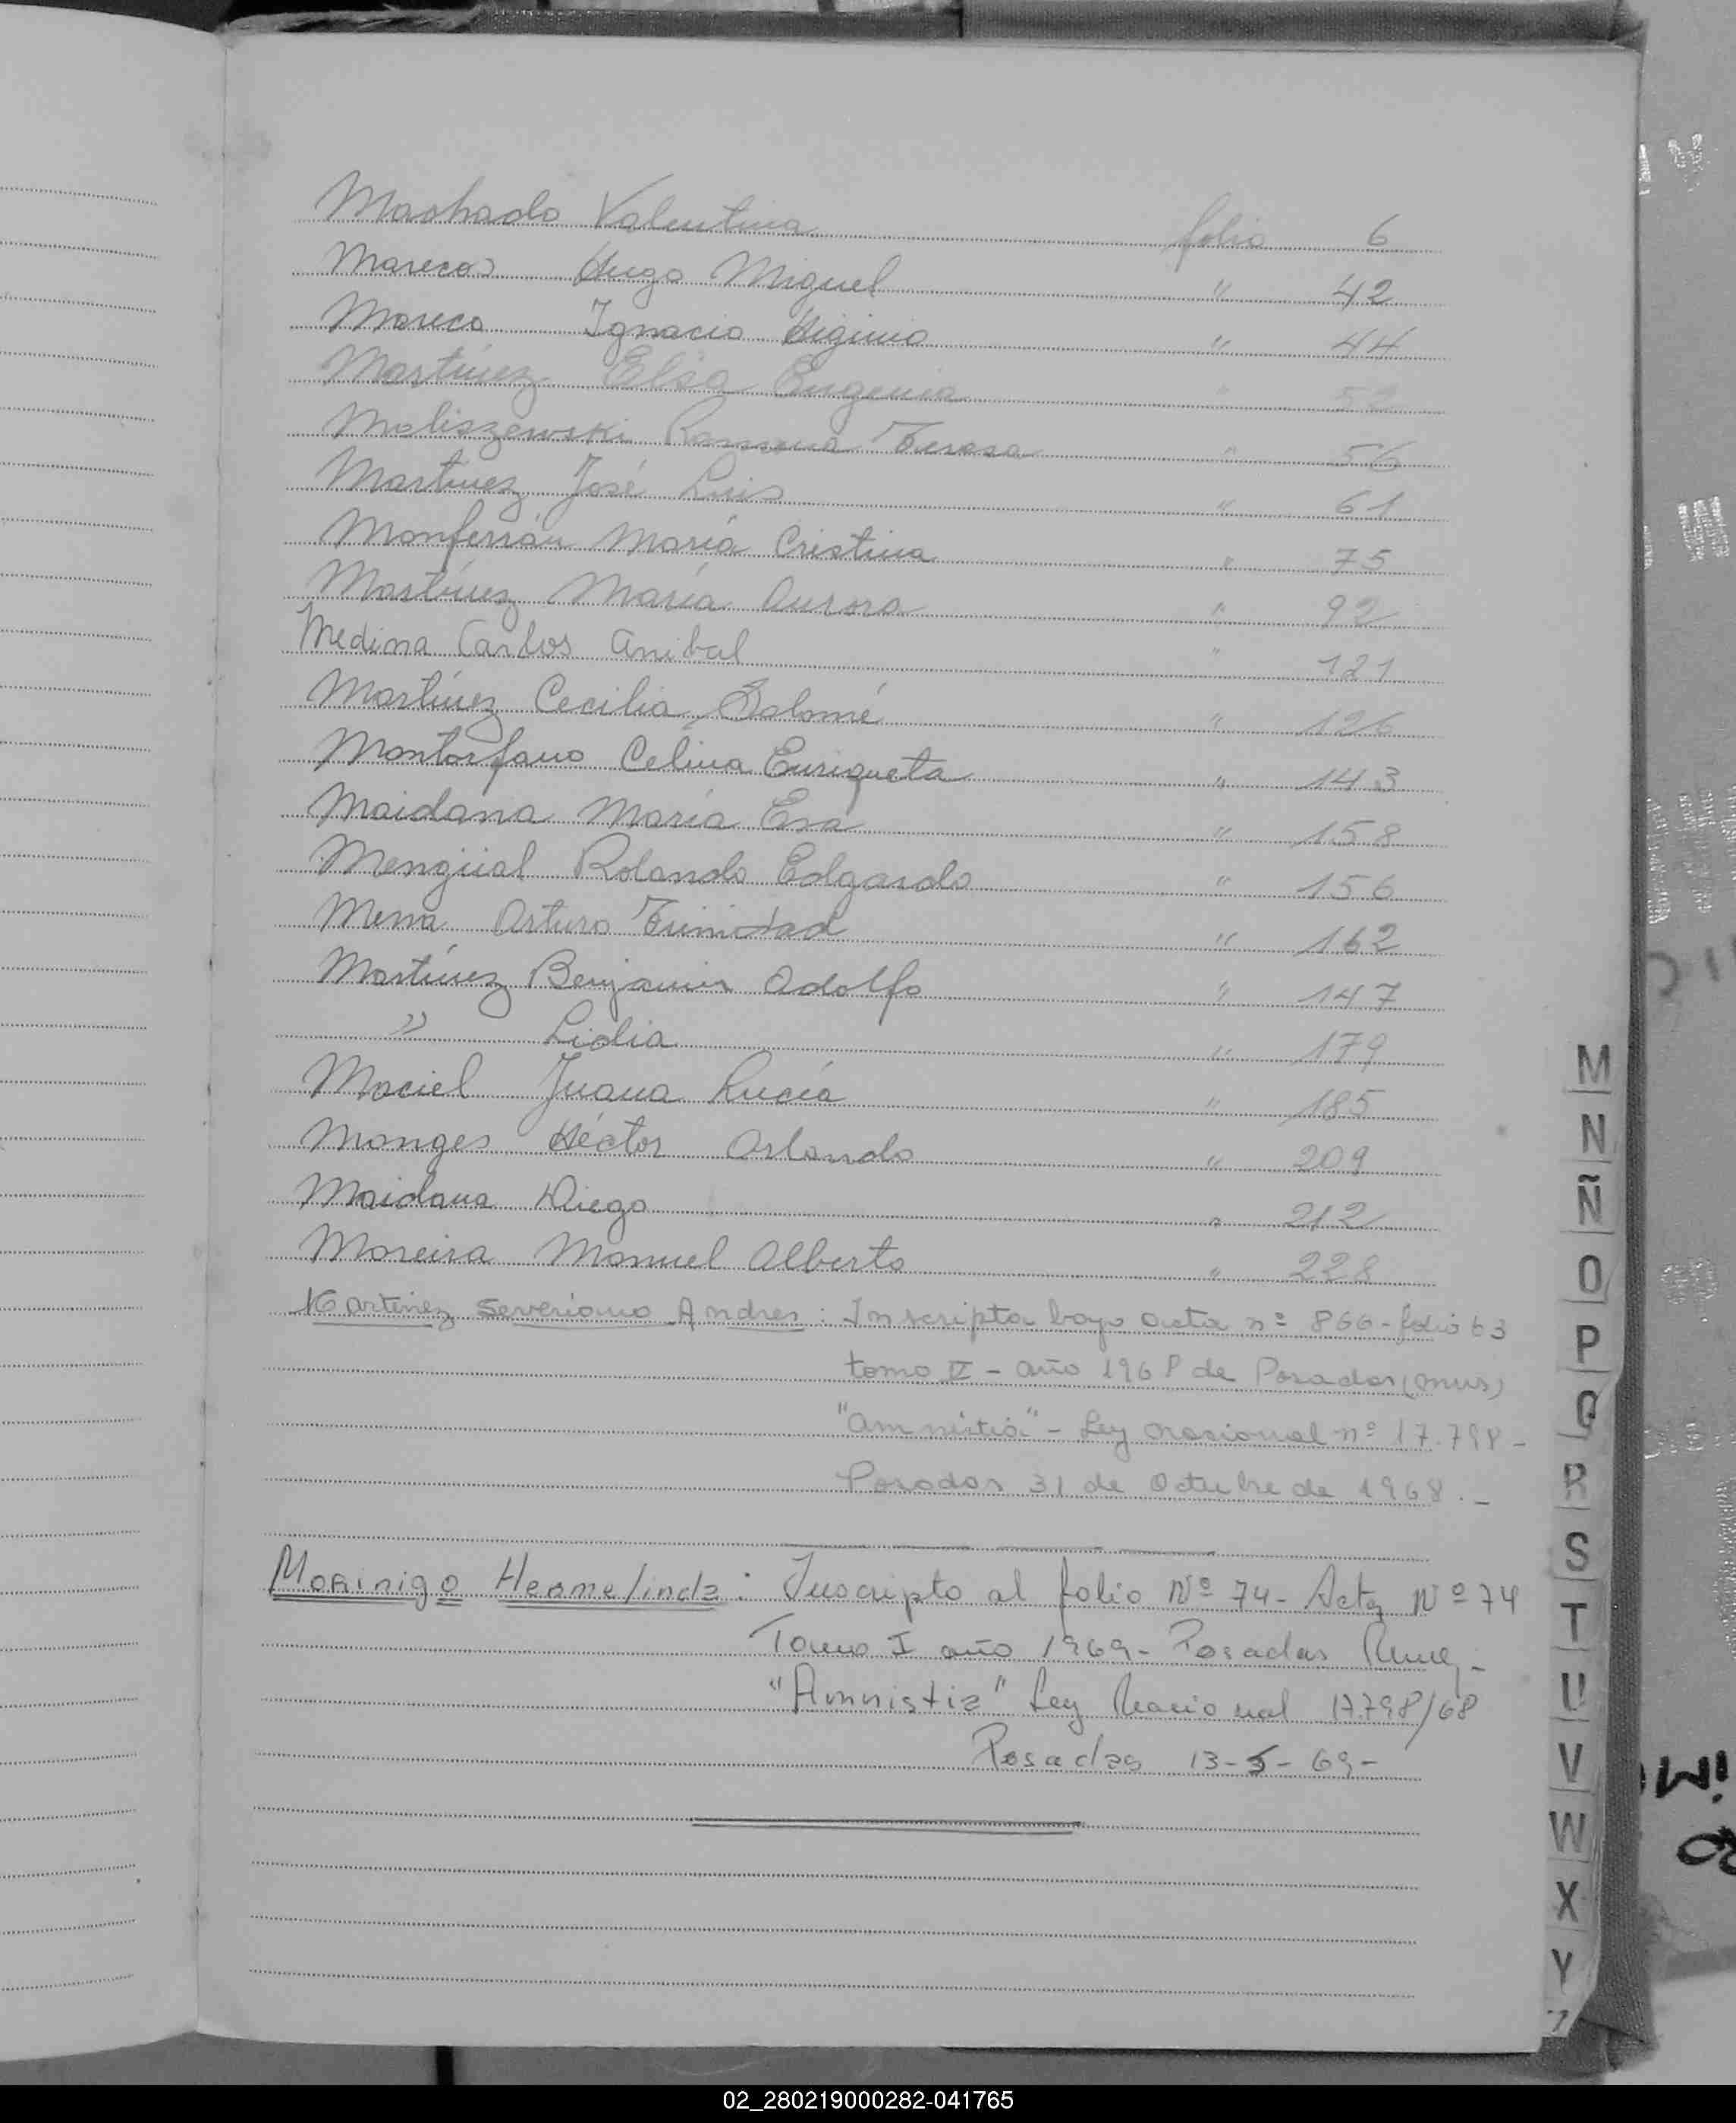 Machado Valentina folio 6
Mareco Hugo Miguel " 42
Mareco Ignacio Higinio " 44
Martínez Elsa Eugenia " 52
Maliszewski Ramona Teresa " 56
Martínez José Luis " 61
Monferrán María Cristina " 75
Martínez María Aurora " 92
Medina Carlos Anibal " 121
Martínez Cecilia Salomé " 126
Montorfano Celina Enriqueta " 143
Maidana María Eva " 158
Mengüal Rolando Edgardo " 156
Mena Arturo Trinidad " 162
Martínez Benjamin Adolfo " 147
" Lidia " 179
Maciel Juana Lucía " 185
Monges Héctor Orlando " 209
Maidana Diego " 212
Moreira Manuel Alberto " 228
Martinez Severiano Andres : Inscripta bajo acta nº 866 - folio 63
tomo IV - año 1968 de Posadas (mns)
"amnistia" - Ley nacional nº 17.798 -
Posadas 31 de Octubre de 1968 . -
Morinigo Hermelinda : Inscripto al folio Nº 74 - Acta Nº 74
Tomo I año 1969 - Posadas
"Amnistia" Ley Nacional 17.798/68
Posadas 13-5-69-
M
N
Ñ
O
P
Q
R
S
T
U
V
W
X
Y
02_280219000282-041765